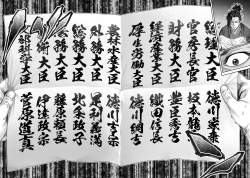 総理大臣 徳川家康
官房長官 坂本龍馬
財務大臣 豊臣秀吉
経済産業大臣 織田信長
厚生労働大臣 徳川綱吉
農林水産大臣 徳川吉宗
外務大臣 足利義満
総務大臣 北条政子
務大臣 藤原頼長
大臣 伊達政宗
科学大臣 菅原道真